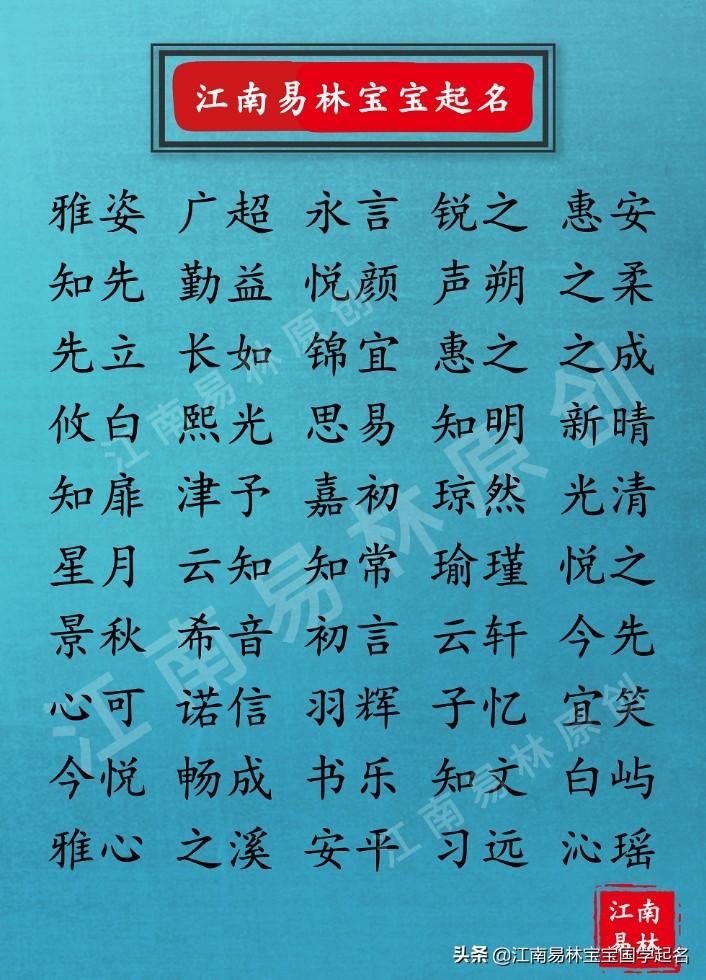 江南易林宝宝起名
雅姿 广超 永言 锐之 惠安
知先 勤益 悦颜 声朔 之柔
先立 长如 锦宜 惠之 之成
攸白 熙光 思易 知明 新晴
知扉 津予 嘉初 琼然 光清
星月 云知 知常 瑜瑾 悦之
景秋 希音 初言 云轩 今先
心可 诺信 羽辉 子忆 宜笑
今悦 畅成 书乐 知文 白屿
雅心 之溪 安平 习远 沁瑶
江南易林原创
江南易林原创
江南易林原创
江南
易林
头条 @江南易林宝宝国学起名